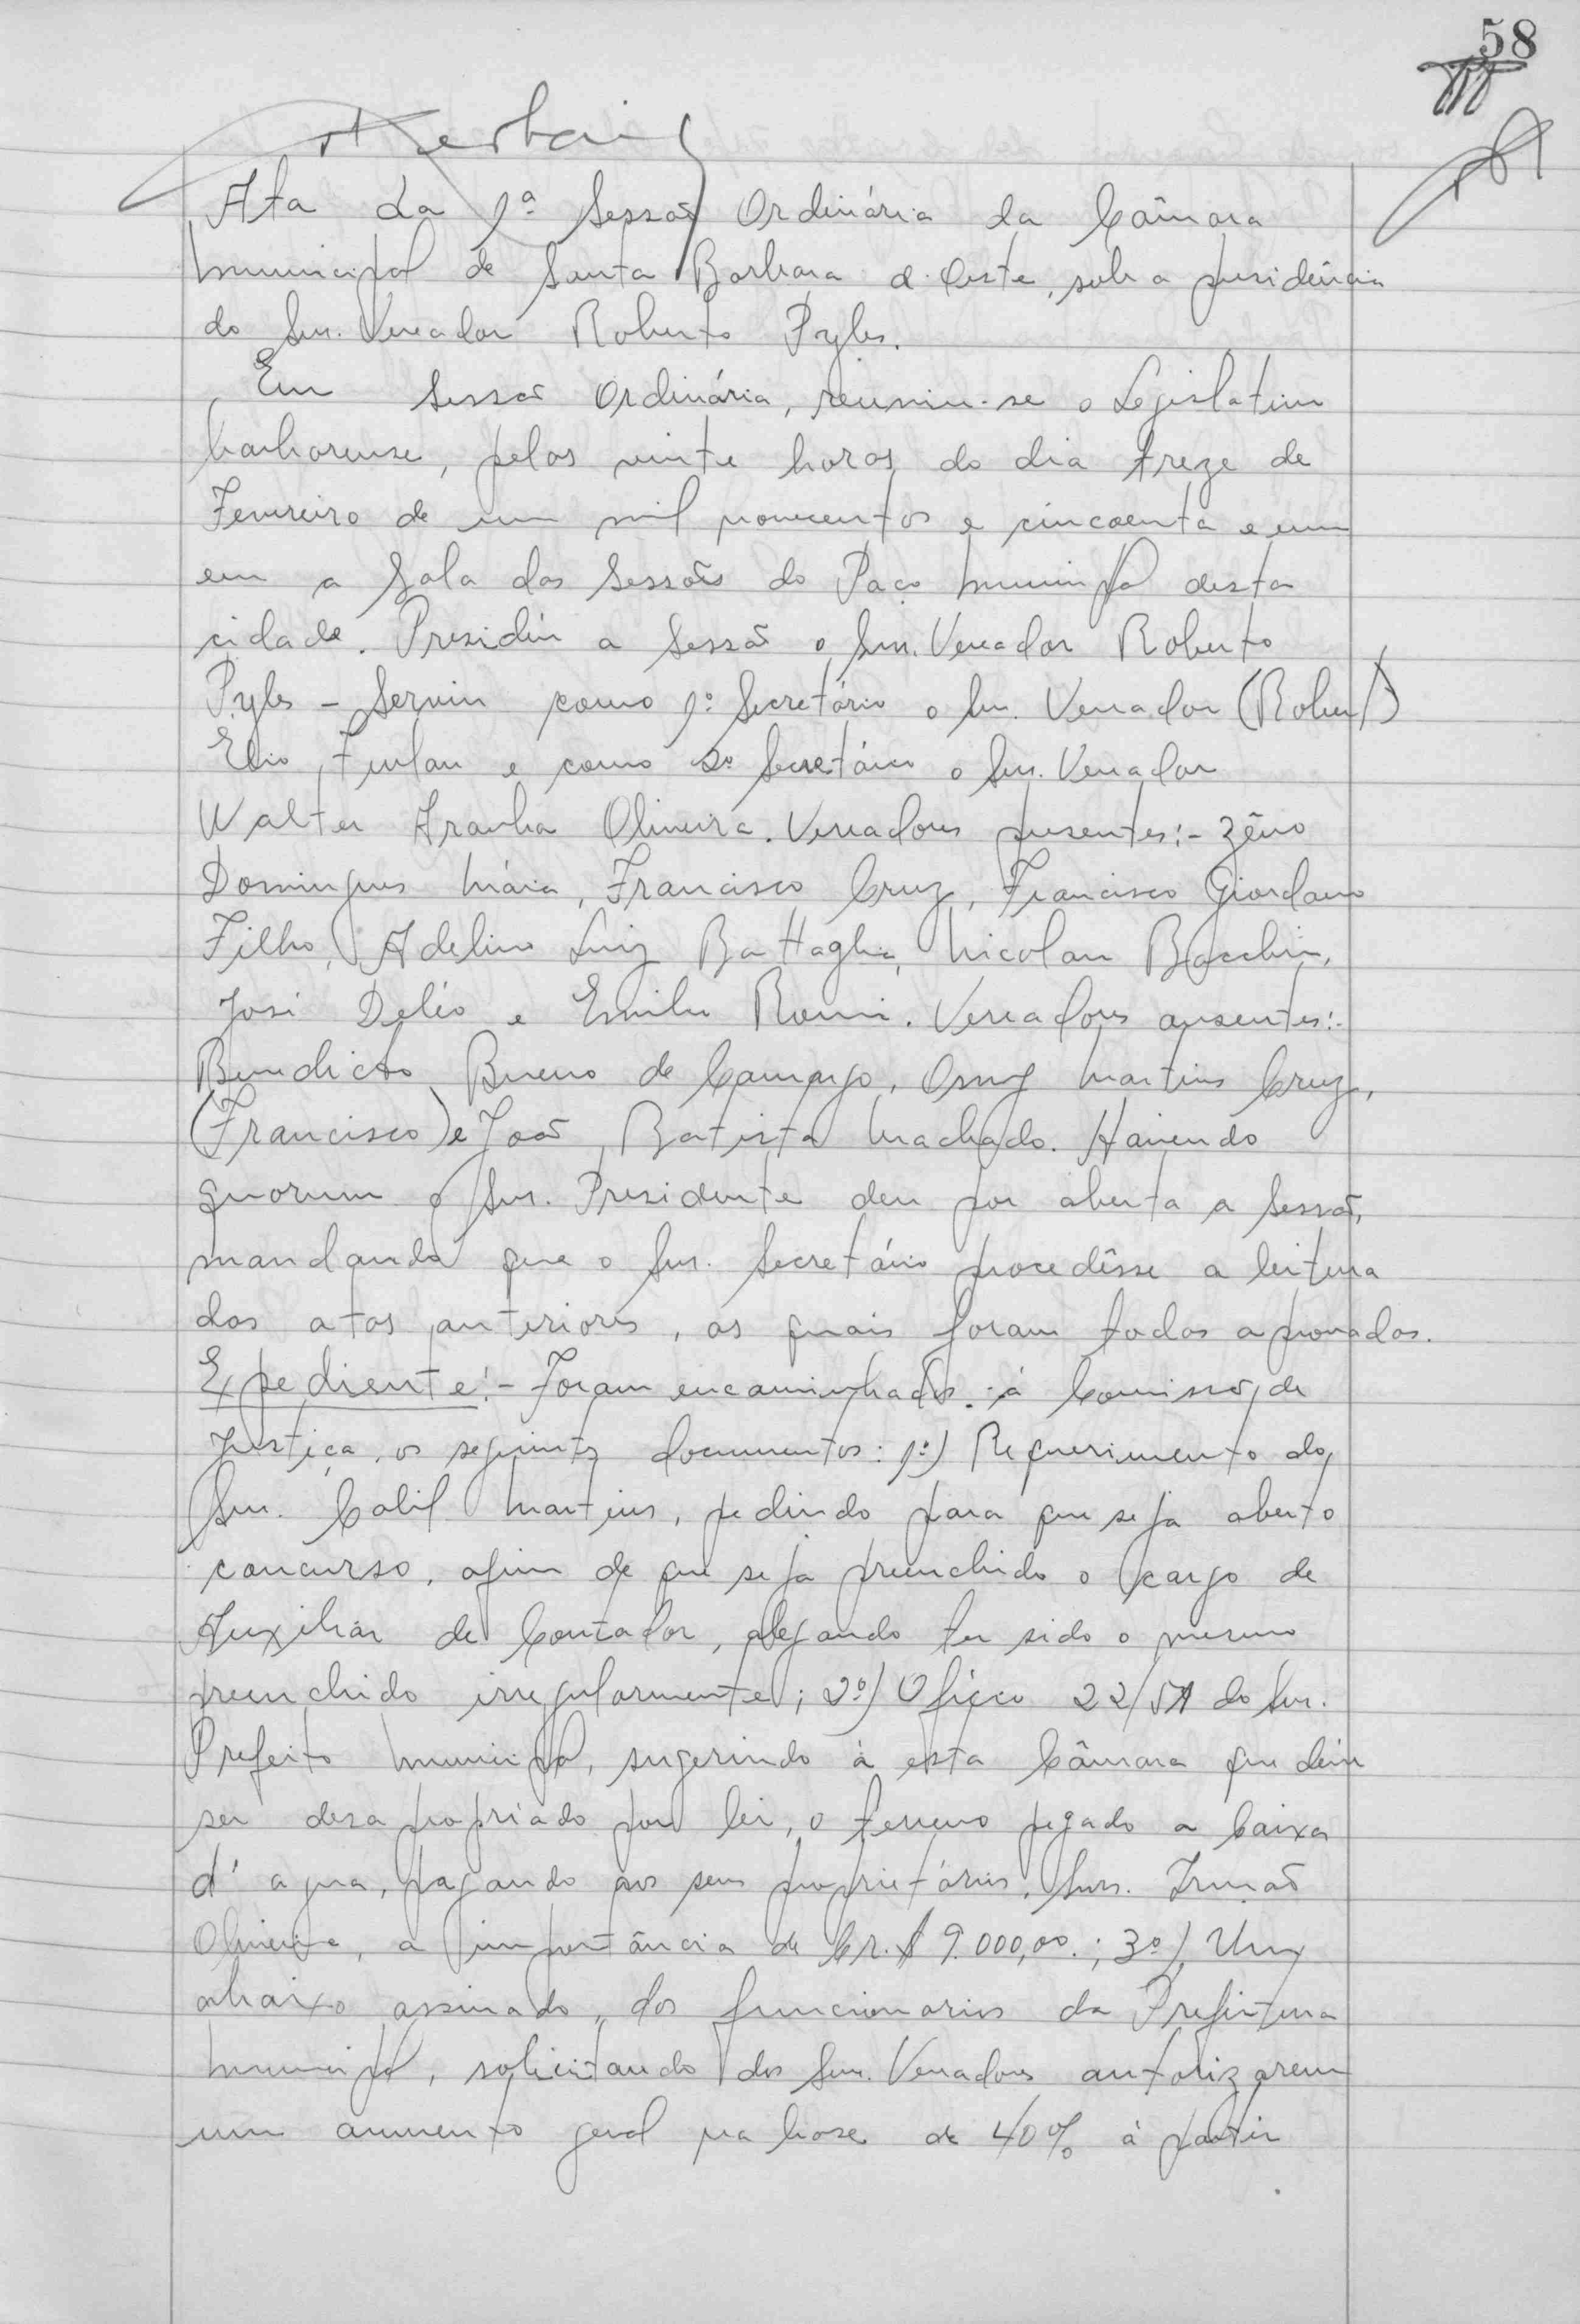 58
Ata da 1ª Sessão Ordinária da Câmara
Municipal de Santa Barbara d. Oeste, sob a presidência
do Snr. Vereador Roberto Pyles.
Em Sessão Ordinária, reuniu-se o Legislativo
barbarense, pelas vinte horas do dia treze de
Fevereiro de um mil novecentos e cincoenta e um
em a Sala das Sessões do Paço Municipal desta
cidade. Presidiu a Sessão o Snr. Vereador Roberto
Pyles - Serviu como 1º Secretário o Snr. Vereador (Robert)
Elio Furlan e como 2º Secretário o Snr. Vereador
Walter Aranha Oliveira. Vereadores presentes:- Zêno
Domingues Máia, Francisco Cruz, Francisco Giordano
Filho, Adelino Luiz Battaglia, Nicolau Bacchin,
José Deléo e Emilio Romi. Vereadores ausentes:-
Benedicto Bueno de Camargo, Osny Martins Cruz,
(Francisco) e João Batista Machado. Havendo
quorum o Snr. Presidente deu por aberta a Sessão,
mandando que o Snr. Secretário procedêsse a leitura
das atas anteriores, as quais foram todas aprovadas.
Expediente:- Foram encaminhados à Comissão de
Justiça, os seguintes documentos: 1º) Requerimento do
Snr. Calil Martins, pedindo para que seja aberto
concurso, afim de que seja preenchido o cargo de
Auxiliar de Contador, alegando ter sido o mesmo
preenchido irregularmente; 2º) Ofício 22/51 do Snr.
Prefeito Municipal, sugerindo à esta Câmara que deve
ser desapropriado por lei, o terreno pegado a Caixa
d'agua, pagando aos seus proprietários, Snrs. Irmãos
Oliveira, a importância de Cr.$ 9.000,00.; 3º) Um
abaixo assinado, dos funcionarios da Prefeitura
Municipal, solicitando dos Snrs. Vereadores autorizarem
um aumento geral na base de 40% à partir